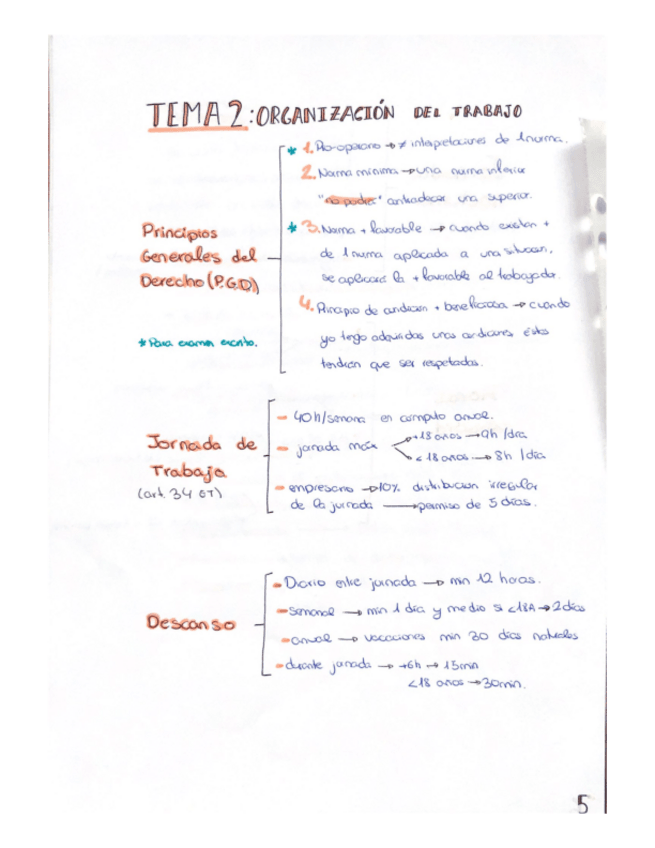 TEMA 2: ORGANIZACIÓN DEL TRABAJO
Principios
Generales del
Derecho (P.G.D)
* Para examen escrito.
* 1. Pro-operario → ≠ interpretaciones de 1 norma.
2. Norma mínima → una norma inferior
"no podrá" contradecir una superior.
* 3. Norma + favorable → cuando existen +
de 1 norma aplicada a una situacion,
se aplicará la + favorable al trabajador.
4. Principio de condicion + beneficiosa → cuando
yo tengo adquiridas unas condiciones éstas
tendrán que ser respetadas.
Jornada de
Trabajo
(art. 34 ET)
- 40h/semana en computo anual.
- jornada máx
+18 años → 9h /dia
< 18 años → 8h /dia
- empresario → 10% distribucion irregular
de la jornada → permiso de 5 días.
Descanso
- Diario entre jornada → min 12 horas.
- semanal → min 1 día y medio si <18A → 2 días
- anual → vacaciones min 30 días naturales
- durante jornada → +6h → 15min
<18 años → 30min.
5